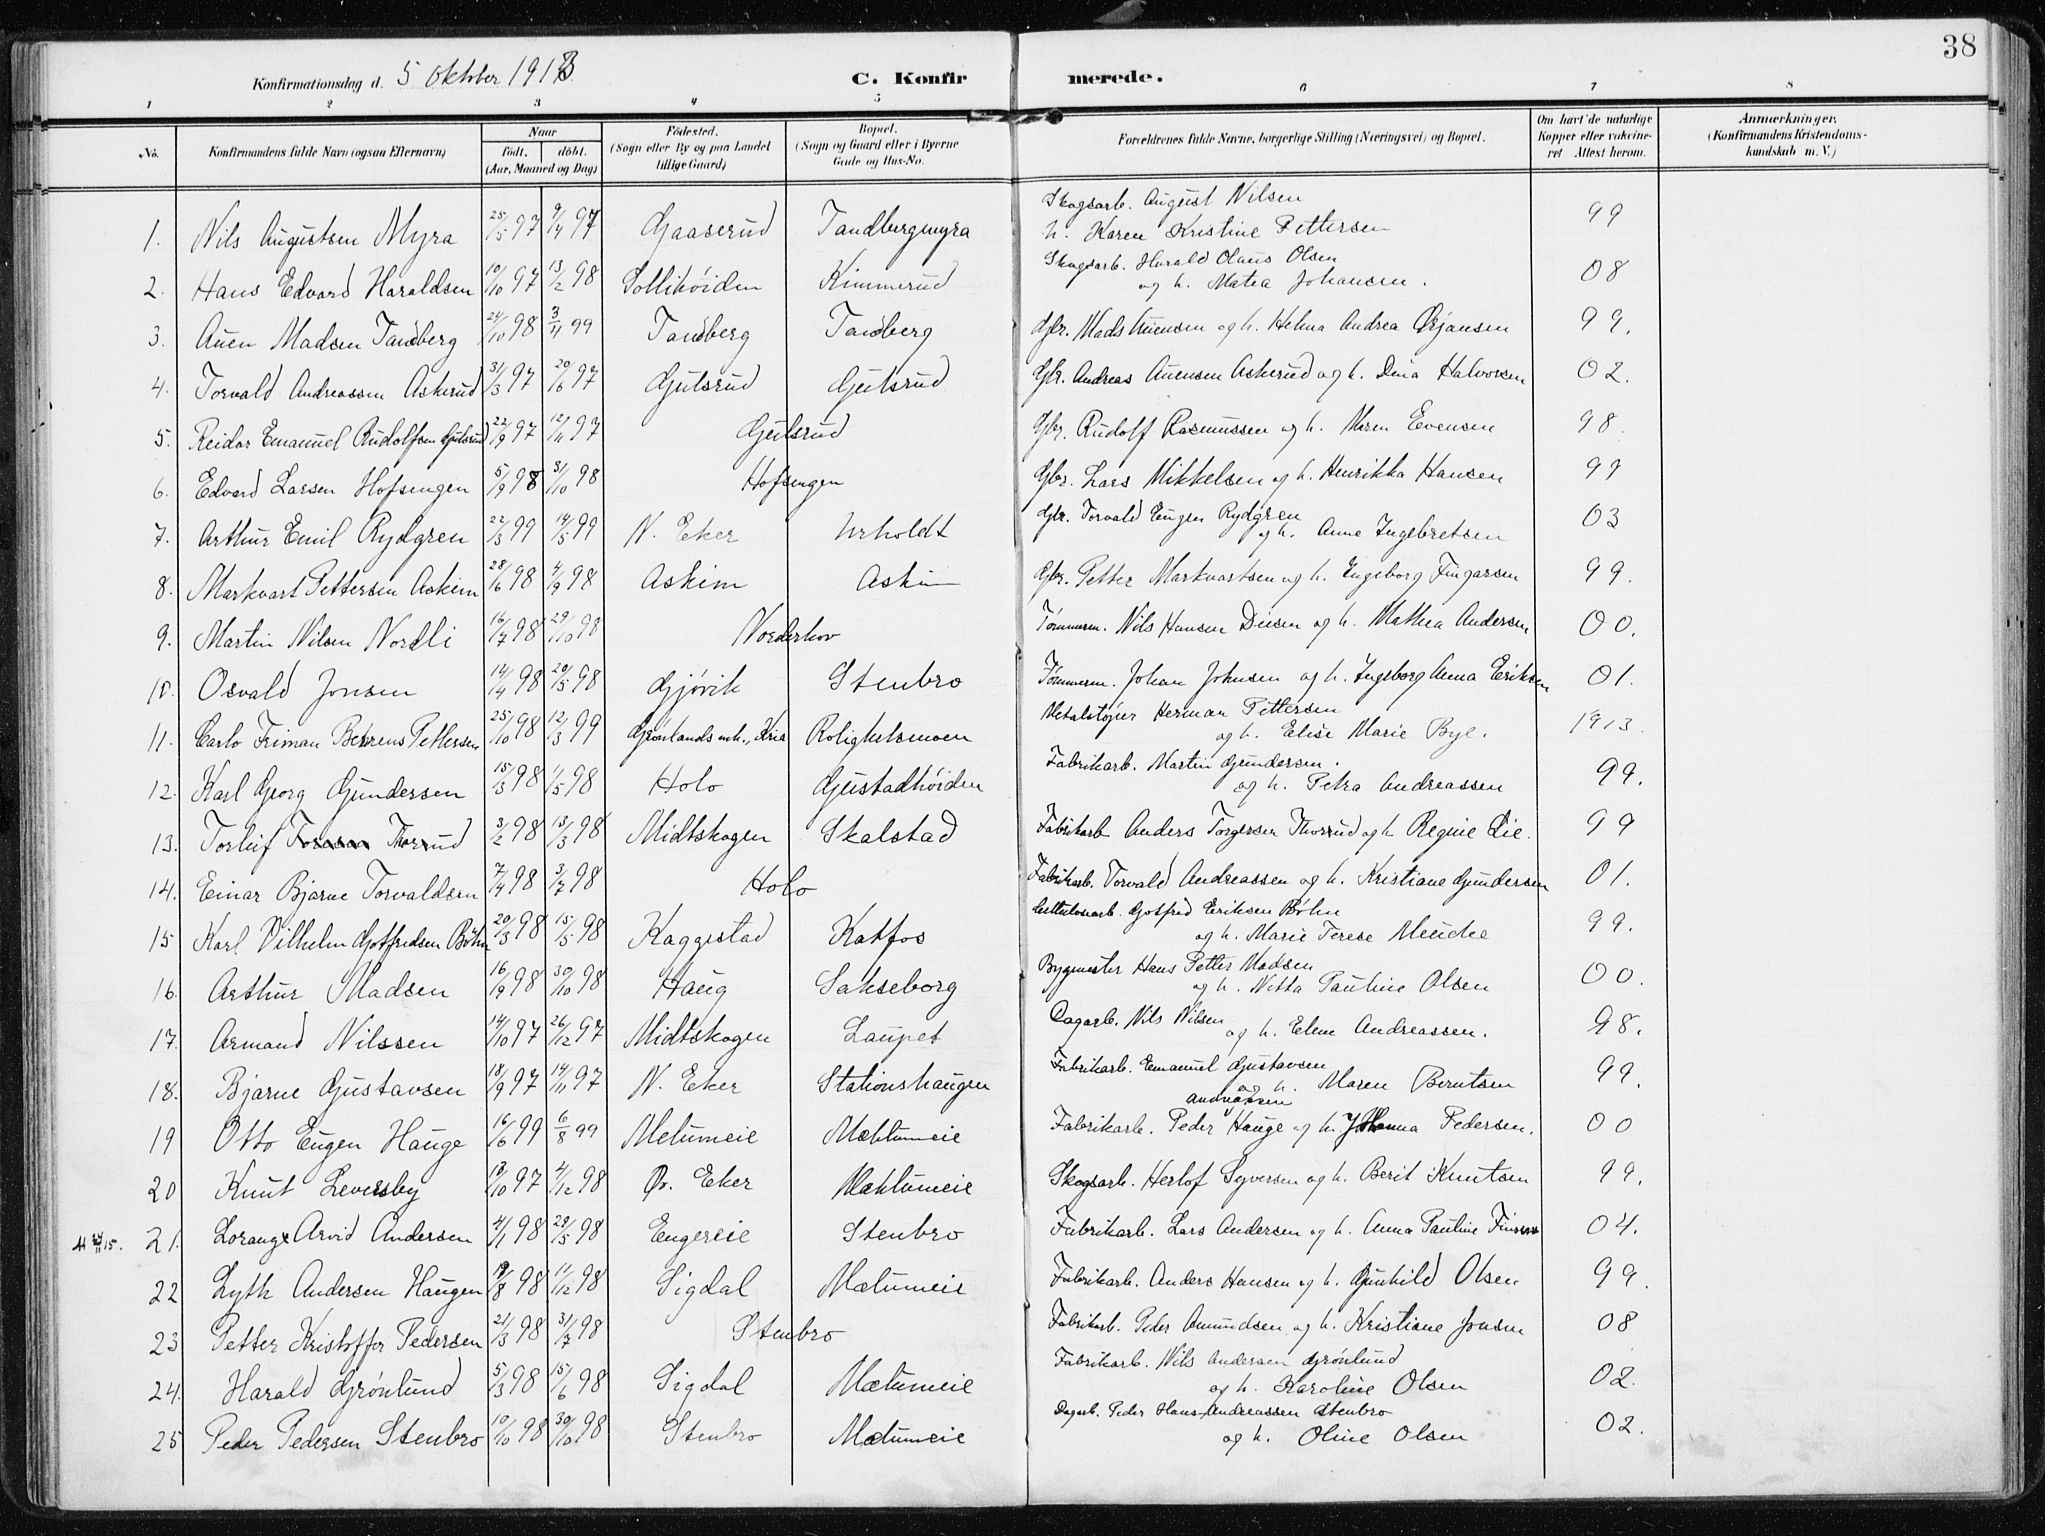 38
Konfirmationsdag d. 5 Oktober 1913 C. Konfirmerede.
1 2 3 4 5 6 7 8
No. Konfirmandens fulde Navn (ogsaa Efternavn) Naar født, døbt. (Aar, Maaned og Dag) Fødested. (Sogn eller By og paa Landet tillige Gaard) Bopæl. (Sogn og Gaard eller i Byerne Gade og Hus-No. Forældrenes fulde Navne, borgerlige Stilling (Næringsvei) og Bopæl. Om havt de naturlige Kopper eller vakcineret Attest herom. Anmærkninger. (Konfirmandens Kristendomskundskab m. V.)
1. Nils Augustsen Myra 25/5 97 9/4 97 Gaaserud Tandbergmyra Skogsarb. August Nilsen h. Karen Kristine Pettersen 99
2. Hans Edvard Haraldsen 10/10 97 13/2 98 Sollihöiden Kimmerud Skogsarb. Harald Olaus Olsen og h. Matea Johansen. 08
3. Auen Madsen Tandberg 24/10 98 3/4 99 Tandberg Tandberg Gbr. Mads Auensen og h. Helma Andrea Ørjansen 99.
4. Torvald Andreassen Askerud 31/3 97 20/6 97 Gulsrud Gulsrud Gbr. Andreas Auensen Askerud og h. Dina Halvorsen 02.
5. Reidar Emanuel Rudolfsen Gulsrud 22/9 97 12/11 97 Gulsrud Gbr. Rudolf Rasmussen og h. Maren Evensen 98.
6. Edvard Larsen Hofsengen 5/9 98 31/10 98 Hofsengen Gbr. Lars Mikkelsen og h. Henrikka Hansen 99
7. Arthur Emil Rydgren 22/3 99 14/5 99 N. Eker Urholdt Gbr. Torvald Eugen Rydgren og h. Anne Ingebretsen 03
8. Markvart Pettersen Askim 28/6 98 4/9 98 Askim Askim Gbr. Petter Markvartsen og h. Engeborg Fingarsen 99.
9. Martin Nilsen Nordli 16/7 98 29/10 98 Norderhov Tömmerm. Nils Hansen Diesen og h. Mathea Andersen 00.
10. Osvald Jonsen 14/4 98 20/5 98 Gjövik Stenbro Tömmerm. Johan Johnsen og h. Ingeborg Anna Eriksen 01.
11. Carlo Friman Behrens Pettersen 25/10 98 12/3 99 Grönlands mh., Kria Rolighetsmoen Metalstöper Herman Pettersen og h. Elise Marie Bye. 1913.
12. Karl Georg Gundersen 15/3 98 1/5 98 Holo Gustadhöiden Fabrikarb. Martin Gundersen. og h. Petra Andreassen 99.
13. Torleif Thorrud 3/2 98 13/3 98 Midtskogen Skalstad Fabrikarb Anders Torgersen Thorrud og h. Regine Lie. 99
14. Einar Bjarne Torvaldsen 7/4 98 3/7 98 Holo Fabrikarb. Torvald Andreassen og h. Kristiane Gundersen 01.
15 Karl Vilhelm Gotfredsen Böhn 20/3 98 15/5 98 Kaggestad Katfos Cellulosearb. Gotfred Eriksen Böhn og h. Marie Terese 99.
16. Arthur Madsen 16/9 98 30/10 98 Haug Sakseborg Bygmester Hans Petter Madsen og h. Nitta Pauline Olsen 00.
17. Armand Nilssen 14/10 97 26/12 97 Midtskogen Laupet Dagarb. Nils Nilsen og h. Elene Andreassen. 98.
18. Bjarne Gustavsen 18/9 97 14/11 97 N. Eker Stationshaugen Fabrikarb. Emanuel Gustavsen og h. Maren Berntsen 99.
19 Otto Eugen Hauge 16/6 99 6/8 99 Melumeie Mælumeie Fabrikarb. Peder Andreassen Hauge og h. Johanna Pedersen. 00
20 Knut Leversby 97 4/12 98 Øv. Eker Mælumeie Skogsarb. Herlof Syversen og h. Berit Knutsen 99.
21. Lorang Arvid Andersen 4/1 98 29/5 98 Engereie Stenbro Fabrikarb. Lars Andersen og h. Anna Pauline 04.
22 Lyth Andersen Haugen 98 11/12 98 Sigdal Mælumeie Fabrikarb. Anders Hansen og h. Gunhild Olsen 99.
23 Petter Kristoffer Pedersen 21/3 98 31/7 98 Stenbro Fabrikarb. Peder Amundsen og h. Kristiane Jonsen 08
24. Harald Grönlund 5/3 98 15/6 98 Sigdal Mælumeie Fabrikarb. Nils Andersen Grönlund og h. Karoline Olsen 02.
25 Peder Pedersen Stenbro 10/10 98 30/10 98 Stenbro Mælumeie Dagarb. Peder Hans Andreassen Stenbro og h. Oline Olsen 02.